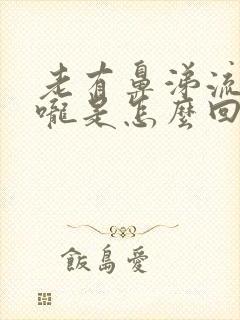 老有鼻涕流
嚨是怎麼回
飯島愛